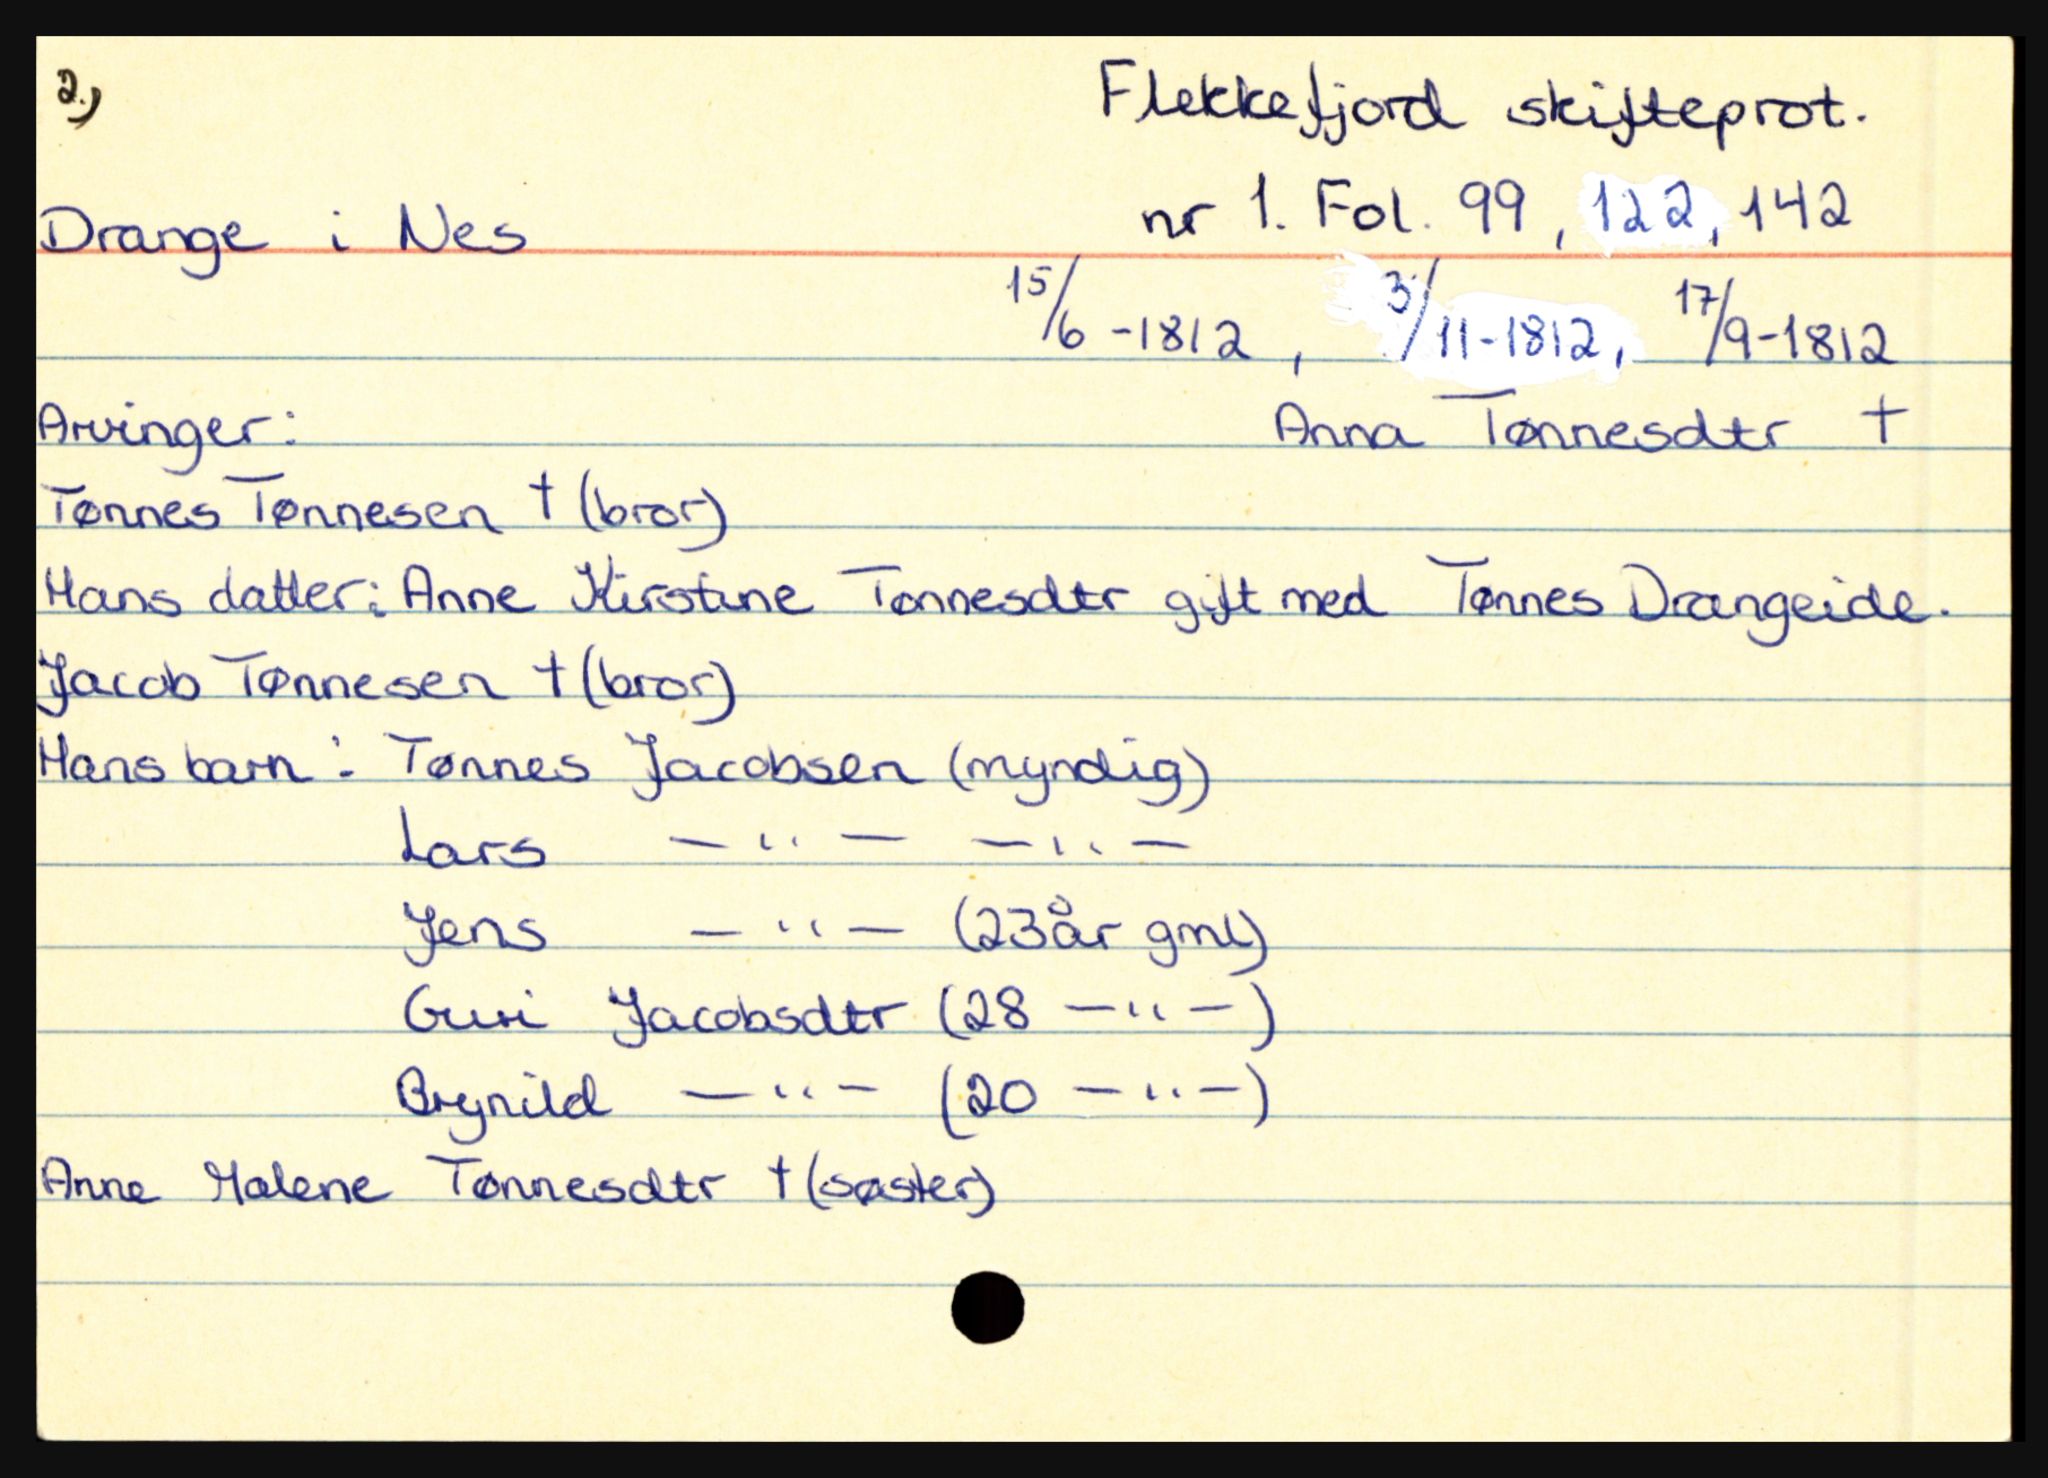 2.)
Flekkefjord skifteprot.
Drange i Nes
nr 1. Fol. 99, 122, 142
15/6 -1812, 3/11-1812, 17/9-1812
Arvinger:
Anna Tønnesdtr †
Tønnes Tønnesen † (bror)
Hans datter: Anne Kirstine Tønnesdtr gift med Tønnes Drangeide.
Jacob Tønnesen † (bror)
Hans barn: Tønnes Jacobsen (myndig)
Lars —"— —"—
Jens —"— (23 år gml)
Guri Jacobsdtr (28 —"—)
Brynild —"— (20 —"—)
Anne Malene Tønnesdtr † (søster)